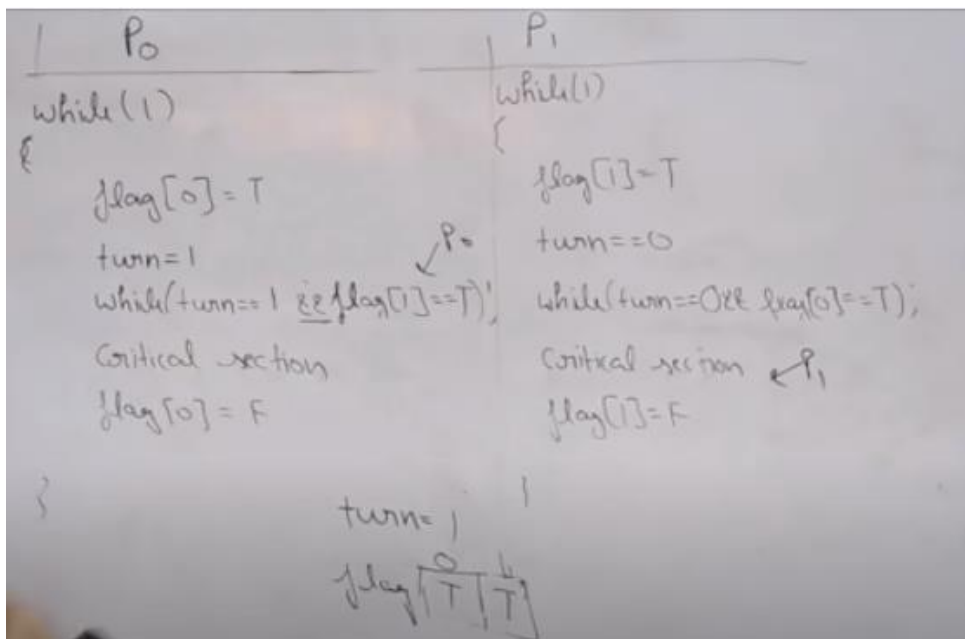 P0
while(1)
{
flag[0] = T
turn=1
P0
while(turn==1 && flag[1]==T);
Critical section
flag[0] = F
}
P1
while(1)
{
flag[1]=T
turn==0
while(turn==0 && flag[0]==T);
Critical section
P1
flag[1]=F
}
turn= 1
0 1
flag T T